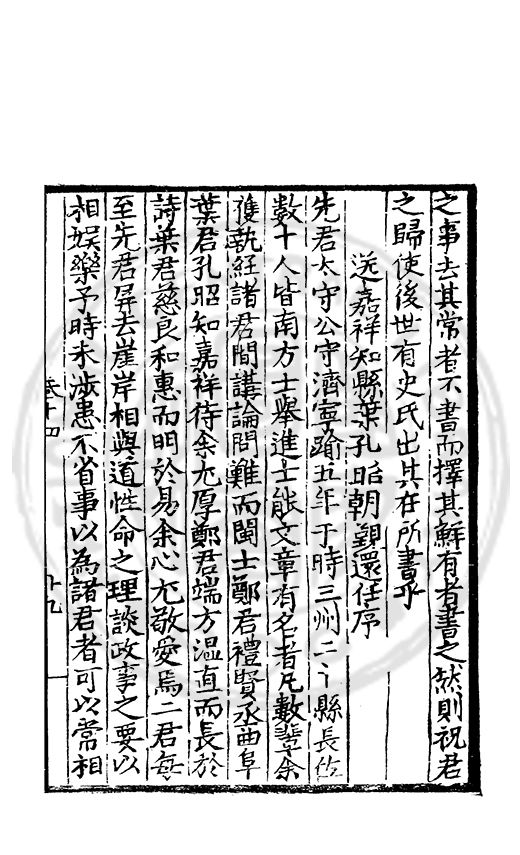 之事去其常者不書而擇其鮮有者書之然則祝君
之歸使後世有史氏出其在所書乎
送嘉祥知縣葉孔昭朝覲還任序
先君太守公守濟寧踰五年于時三州二丶縣長佐
數十人皆南方士舉進士能文章有名者凡數輩余
獲執經諸君間講論問難而閩士鄭君禮賢丞曲阜
葉君孔昭知嘉祥待余尤厚鄭君端方溫直而長於
詩葉君慈良和惠而明於易余心尤敬愛焉二君每
至先君屏去崖岸相與道性命之理談政事之要以
相娛樂予時未涉患不省事以為諸君者可以常相
卷十四